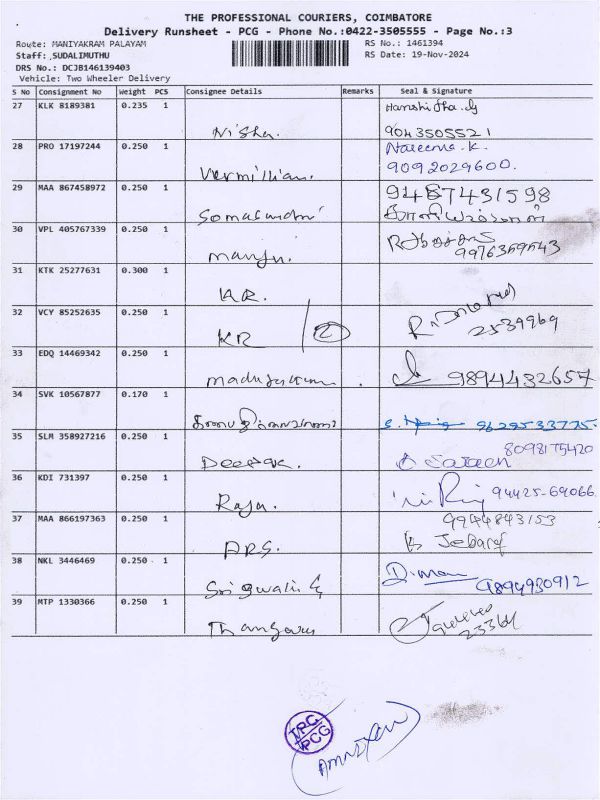 THE PROFESSIONAL COURIERS, COIMBATORE
Delivery Runsheet - PCG - Phone No.:0422-3505555 - Page No.:3
Route: MANIYAKRAM PALAYAM
RS No.: 1461394
Staff: ,SUDALIMUTHU
RS Date: 19-Nov-2024
DRS No.: DCJB146139403
Vehicle: Two Wheeler Delivery
S No Consignment No Weight PCS Consignee Details Remarks Seal & Signature
27 KLK 8189381 0.235 1
Nisha. 9043505521
28 PRO 17197244 0.250 1 Nareema.K.
Vermillian. 9092029600.
29 MAA 867458972 0.250 1 9487431598
30 VPL 405767339 0.250 1
Manju. 9976359543
31 KTK 25277631 0.300 1
KR.
32 VCY 85252635 0.250 1
KR 2 2534969
33 EDQ 14469342 0.250 1
9894432657
34 SVK 10567877 0.170 1
9629533775
35 SLM 358927216 0.250 1 8098175420
Deepak.
36 KDI 731397 0.250 1
Raja. 94425-69066
37 MAA 866197363 0.250 1 9944843153
38 NKL 3446469 0.250 1
9894930912
39 MTP 1330366 0.250 1
TPC
PCG